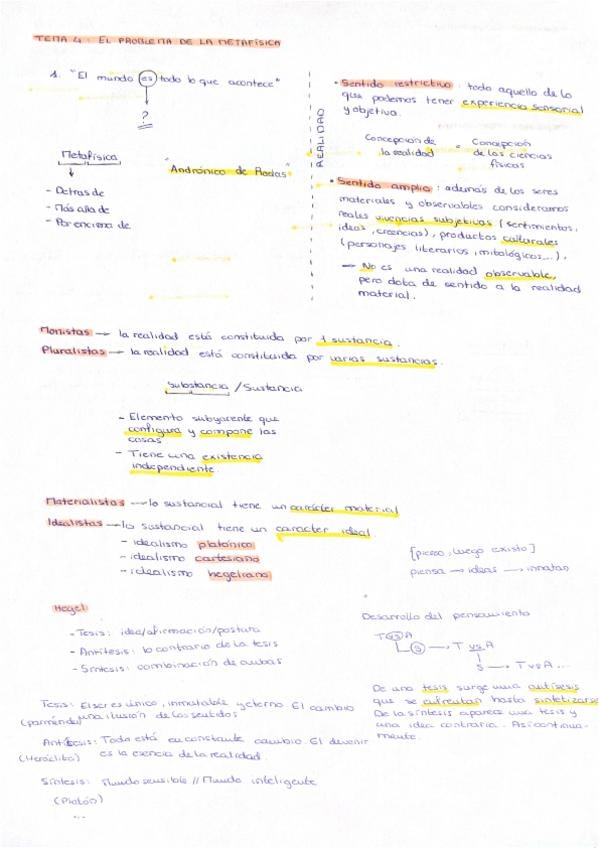 TEMA 4: EL PROBLEMA DE LA METAFÍSICA
1. "El mundo es todo lo que acontece"
?
Metafísica
- Detras de
- Más alla de
- Por encima de
"Andrónico de Rodas"
REALIDAD
• Sentido restrictivo: todo aquello de lo
que podemos tener experiencia sensorial
y objetiva.
Concepcion de la realidad = Concepcion de las ciencias físicas
• Sentido amplio: además de los seres
materiales y observables consideramos
reales vivencias subjetivas (sentimientos,
ideas, creencias), productos culturales
(personajes literarios, mitológicos...).
→ No es una realidad observable,
pero dota de sentido a la realidad
material.
Monistas → la realidad está constituida por 1 sustancia.
Pluralistas → la realidad está constituida por varias sustancias.
Substancia / Sustancia
- Elemento subyacente que
configura y compone las
cosas
- Tiene una existencia
independiente.
Materialistas → lo sustancial tiene un carácter material
Idealistas → lo sustancial tiene un caracter ideal.
- idealismo platónico
- idealismo cartesiano
- idealismo hegeliano
[pienso, luego existo]
piensa → ideas → innatas
Hegel
- Tesis: idea/afirmación/postura
- Antítesis: lo contrario de la tesis
- Síntesis: combinación de ambas
Desarrollo del pensamiento
T vs A
S → T vs A
S → T vs A...
De una tesis surge una antítesis
que se enfrentan hasta sintetizarse
De la síntesis aparece una tesis y
una idea contraria. Así continua-
mente.
Tesis: El ser es único, inmutable y eterno. El cambio
(parménides) una ilusión de los sentidos
Antítesis: Todo está en constante cambio. El devenir
(Heráclito) es la esencia de la realidad.
Síntesis: Mundo sensible // Mundo inteligente
(Platón)
...